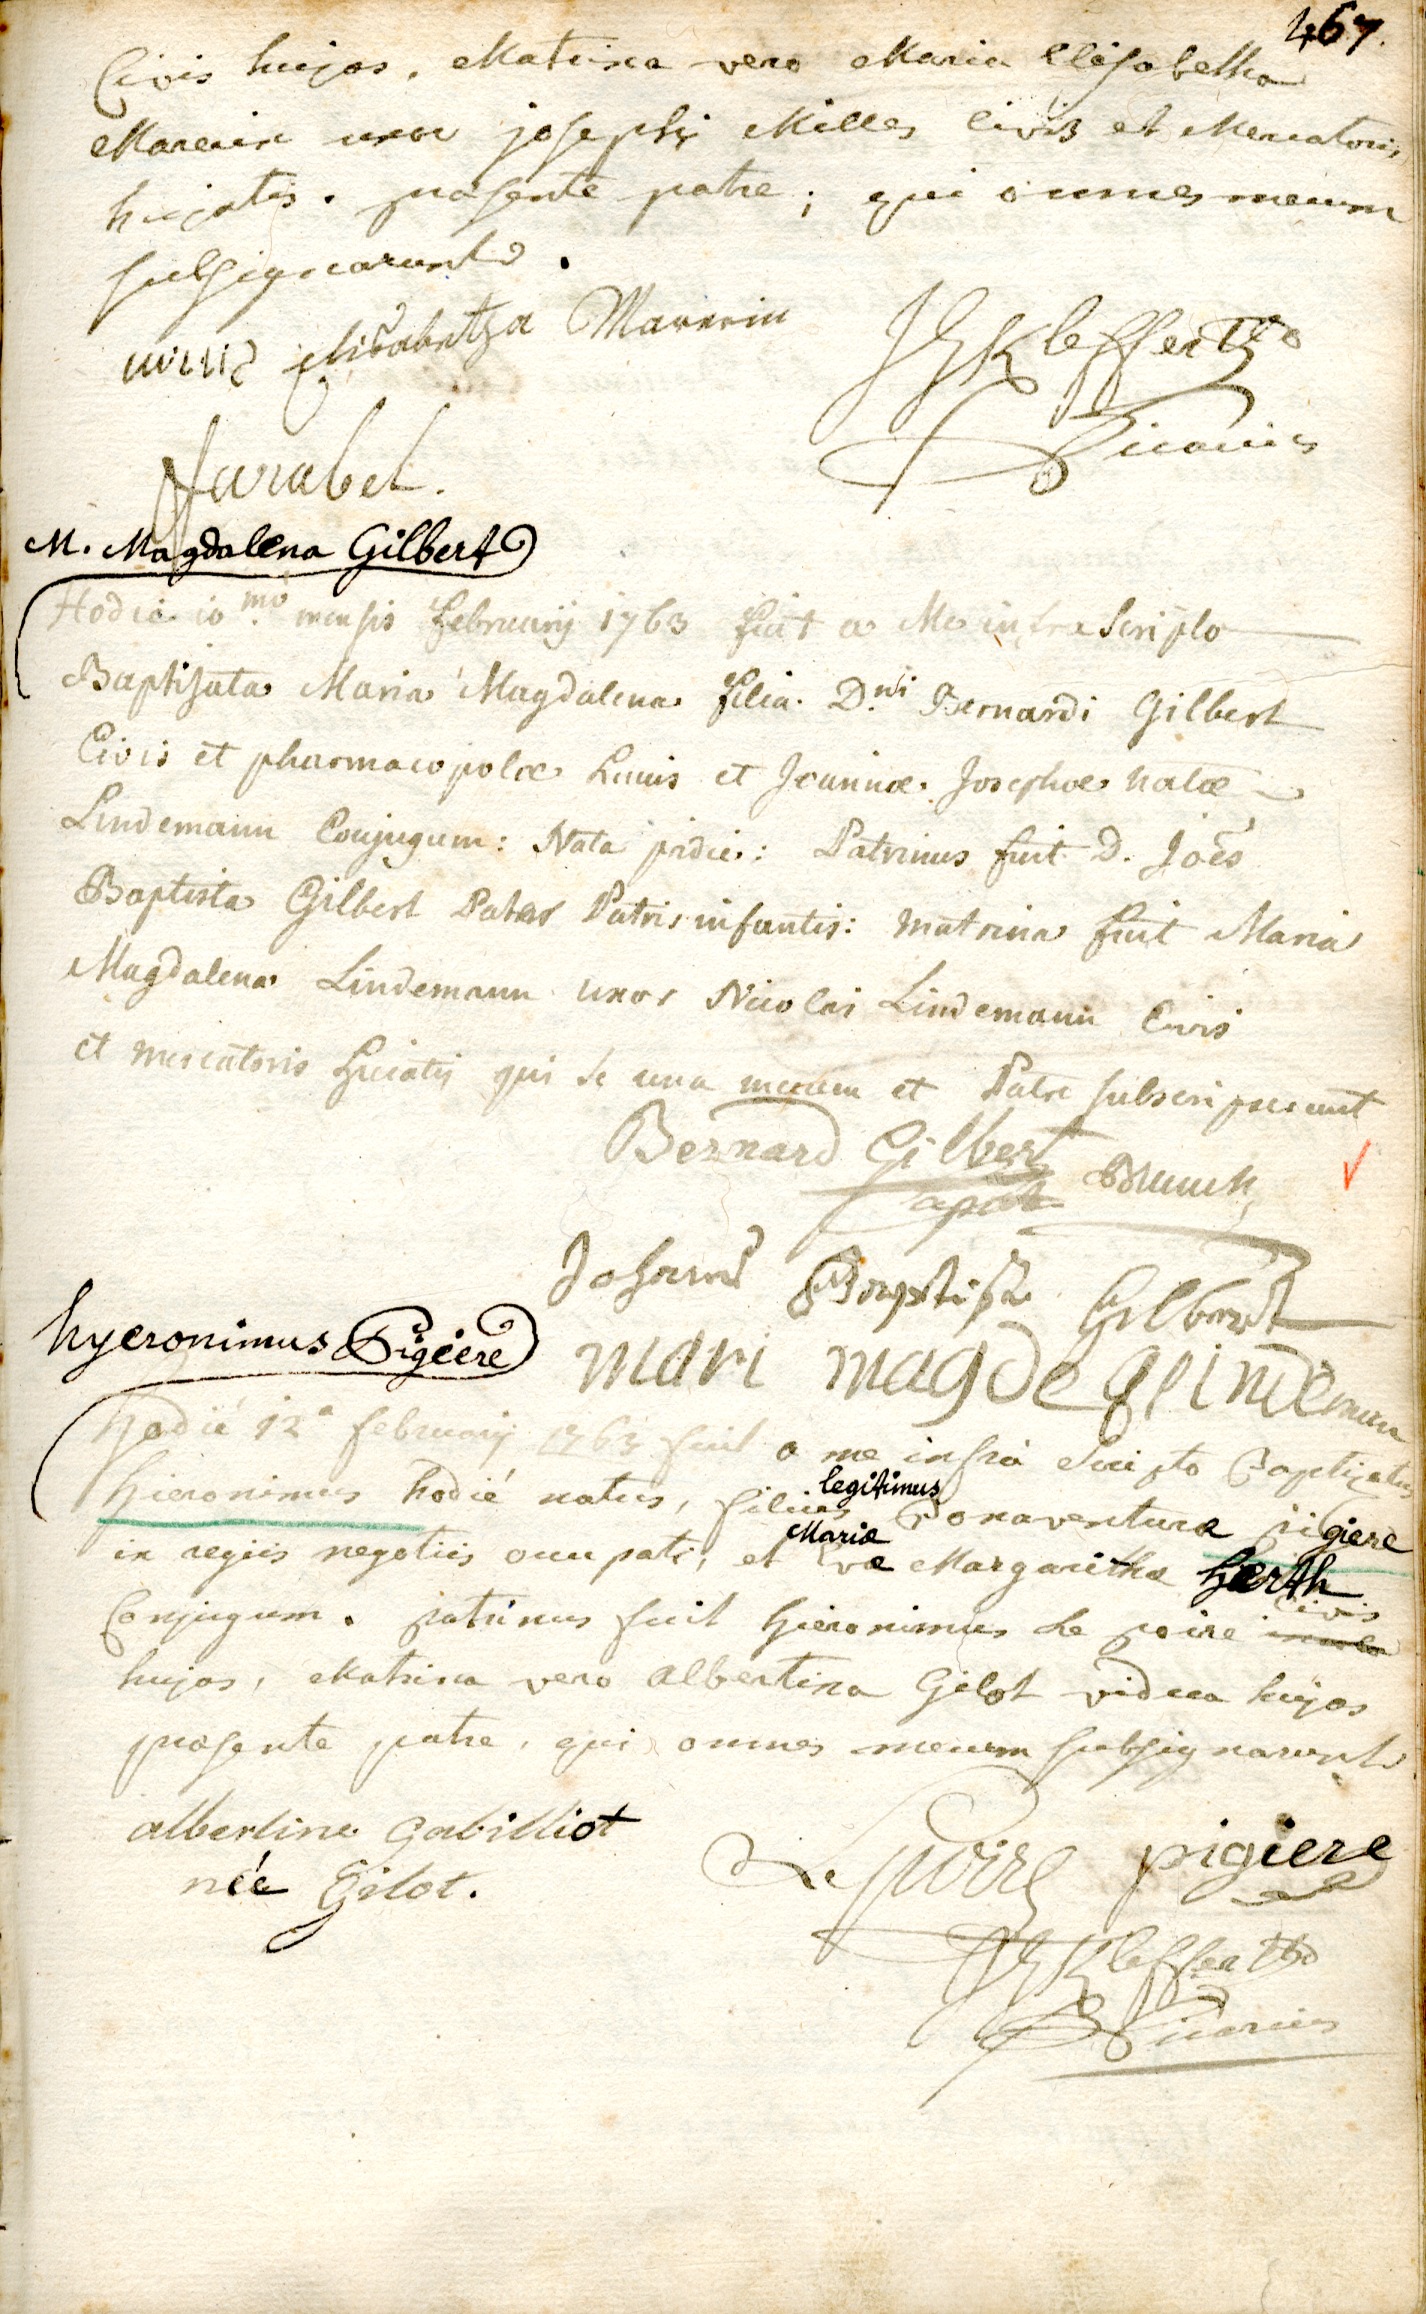 467.
Civis hujas, Matrina vero Maria Elisabetha
Marerin uxor josephi Milles civis et Mercatoris
hujatis. præsente patre; qui omnes mecum
subsignarunt.
Elisabetha Marerin
JGKleffertz
Vicarius
Jarabel.
M. Magdalena Gilbert
Hodie 10mo mensis februarij 1763 fuit a Me infra Scripto
Baptisata Maria Magdalena filia Dni Bernardi Gilbert
Civis et pharmacopolæ huius et Joannæ Josephæ natæ
Lindemann Conjugum: Nata pridie: Patrinus fuit D. Joes
Baptista Gilbert Pater Patris infantis: matrina fuit Maria
Magdalena Lindemann uxor Nicolai Lindemann Civis
et mercatoris huiatis qui se una mecum et Patre subscripserunt
Bernard Gilbert
apot
Brunck
Johann Baptist Gilbert
mari magdeqlindemun
hyeronimus Pigiere
hodie 12a februarij 1763 fuit a me infra Scripto Baptizatus
legitimus
hieronimus hodié natus, filius Bonaventuræ pigiere
Mariæ
in regiis negotiis occupati, et væ Margarithæ herth
Conjugum. patrinus fuit hieronimus Le poire civis
hujas, Matrina vero Albertina Gilot vidua hujas
præsente patre, qui omnes mecum subsignarunt
albertine Gabilliot
née Gilot.
Le poire
pigiere
JGKleffertz
Vicarius